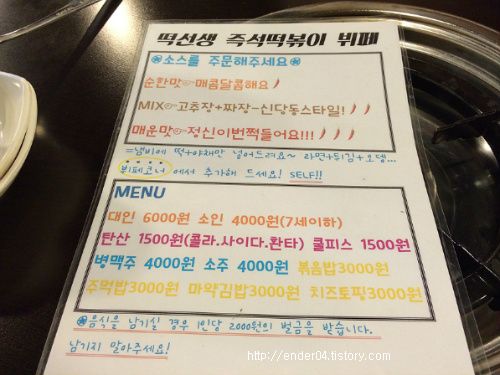 떡선생 즉석떡볶이 뷔페
※소스를 주문해주세요※
순한맛☞매콤달콤해요
MIX☞고추장+짜장-신당동스타일!
매운맛☞정신이번쩍들어요!!!
=냄비에 떡+야채만 넣어드려요~ 라면+튀김+오뎅...
뷔페코너 에서 추가해 드세요! SELF!!
MENU
대인 6000원 소인 4000원(7세이하)
탄산 1500원(콜라.사이다.환타) 쿨피스 1500원
병맥주 4000원 소주 4000원 볶음밥3000원
주먹밥3000원 마약김밥3000원 치즈토핑3000원
※음식을 남기실 경우 1인당 2000원의 벌금을 받습니다.
남기지 말아주세요!
http://ender04.tistory.com